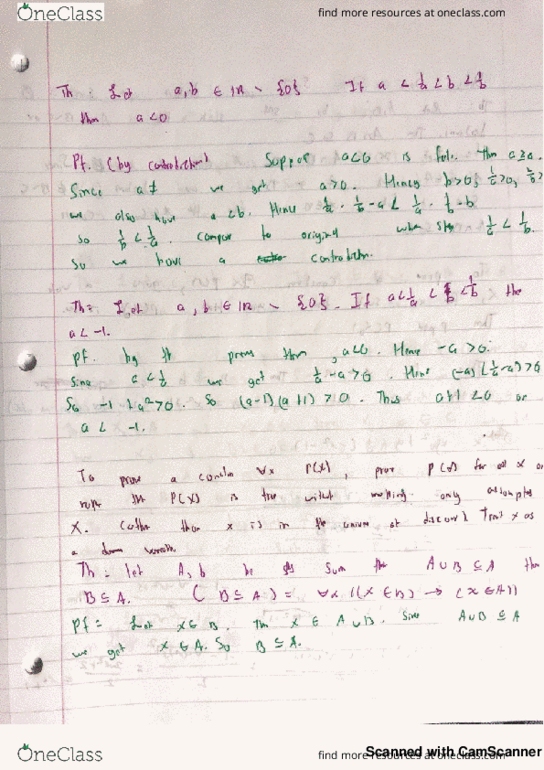 OneClass
find more resources at oneclass.com
Th Let a,b ∈ IR \ {0} If a < 1/a < b < 1/b
then a<0
Pf. (by contradiction) Suppose a<0 is false. Then a≥0.
Since a≠ we get a>0. Hence b>0, 1/a>0,
we also have a<b. Hence 1/a · 1/b · a < 1/a · 1/b · b
So 1/b < 1/a. Compare to original 1/a < 1/b.
So we have a contradiction.
Th: Let a, b ∈ IR \ {0}. If a < 1/a < b < 1/b the
a < -1.
Pf. by th prev thm, a<0. Hence -a > 0.
Since a < 1/a we get 1/a - a > 0. Hence (-a)(1/a - a) > 0
So -1 + a² > 0. So (a-1)(a+1) > 0. Thus a+1 < 0 or
a < -1.
To prove a ∀x P(x), prove P(x) for all x
the P(x) is true making only
X. than x is in the of
a
Th: let A, b be the A∪B ⊆ A then
B ⊆ A. (B ⊆ A) = ∀x ((x ∈ B) → (x ∈ A))
Pf: Let x ∈ B. Then x ∈ A∪B. Since A∪B ⊆ A
we get x ∈ A. So B ⊆ A.
OneClass
find more resources at oneclass.com
Scanned with CamScanner